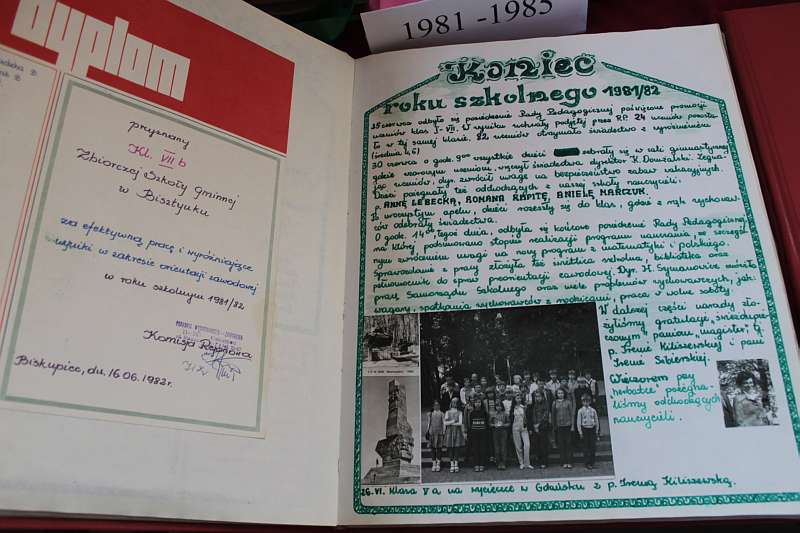 1981-1985
dyplom
przyznany
Kl. VII b
Zbiorczej Szkoły Gminnej
w Bisztynku
za efektywną pracę i wyróżniające
wyniki w zakresie orientacji zawodowej
w roku szkolnym 1981/82
Komisja Rejonowa
Biskupice, dn. 16.06.1982r.
Koniec
roku szkolnego 1981/82
25 czerwca odbyło się posiedzenie Rady Pedagogicznej poświęcone promocji
uczniów klas I-VII. W wyniku uchwały podjętej przez R.P. 24 uczniów pozosta
ło w tej samej klasie. 82 uczniów otrzymało świadectwo z wyróżnieniem
30 czerwca o godz. 9⁰⁰ wszystkie dzieci zebrały się w sali gimnastycznej
gdzie wzorowym uczniom, wręczył świadectwa dyrektor K. Dowżański. Żegna-
jąc uczniów, dyr. zwrócił uwagę na bezpieczeństwo zabaw wakacyjnych.
Dzieci pożegnały też odchodzących z naszej szkoły nauczycieli:
p. ANNĘ LEBECKĄ, ROMANA KAPITĘ, ANIELĘ MARCZUK.
Po uroczystym apelu, dzieci rozeszły się do klas, gdzie z rąk wychowaw-
ców odebrały świadectwa.
O godz. 14⁰⁰ tegoż dnia, odbyła się końcowe posiedzenie Rady Pedagogicznej,
na której podsumowano stopień realizacji programu nauczania, ze szczegól
nym zwróceniem uwagi na nowy program z matematyki i polskiego.
Sprawozdanie z pracy złożyła też świetlica szkolna, biblioteka oraz
pełnomocnik do spraw preorientacji zawodowej. Dyr. H. Szymanowicz omówiła
pracę Samorządu Szkolnego oraz wiele problemów wychowawczych, jak:
wagary, spotkania wychowawców z rodzicami, praca w wolne soboty.
W dalszej części narady zło-
żyliśmy gratulacje, świeżo upie-
czonym paniom, magister, tj.
p. Irenie Kiliszewskiej i pani
Irenie Sibierskiej.
Wieczorem przy
"herbatce" pożegna-
liśmy odchodzących
nauczycieli.
26.VI. Klasa V a na wycieczce w Gdańsku z p. Ireną Kiliszewską.